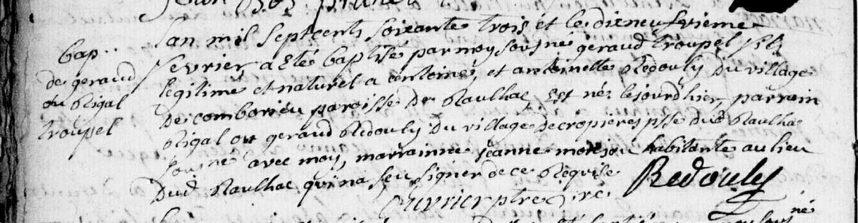 bap..
de geraud
ou Rigal
troupel
L'an mil septcents soixante trois et le dieneufvieme
fevrier a eté baptisé par moy sousné geraud troupel fils
legitime et naturel a antoine, et antoinette Redouly du village
de comborieu paroisse de Raulhac est né le jourdhier, parrain
Rigal ou geraud Redouly du village de cropieres psse dud Raulhac
sousné avec moy, marrainne jeanne habitante au lieu
dud Raulhac qui na seu signer de ce Requise
Redouly
ptre